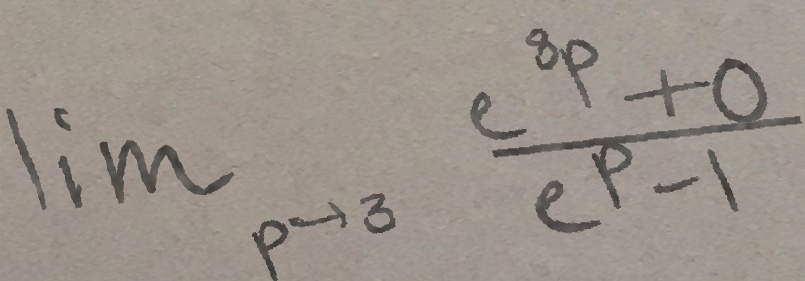 lim p→3 (e^{8p} + 0)/(e^p - 1)